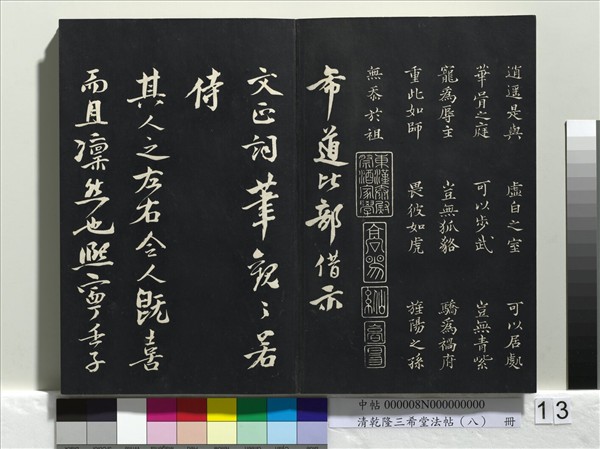 逍遥是與 虛白之室 可以居處
華胥之庭 可以步武 豈無青紫
寵為辱主 豈無狐貉 驕為禍府
重此如師 畏彼如虎 旌陽之孫
無忝於祖
東漢太尉祭酒家學
希道比部借示
文正詞筆觀之若
侍
其人之左右令人既喜
而且凜然也熙寧壬子
中帖 000008N000000000
清乾隆三希堂法帖（八） 冊
13